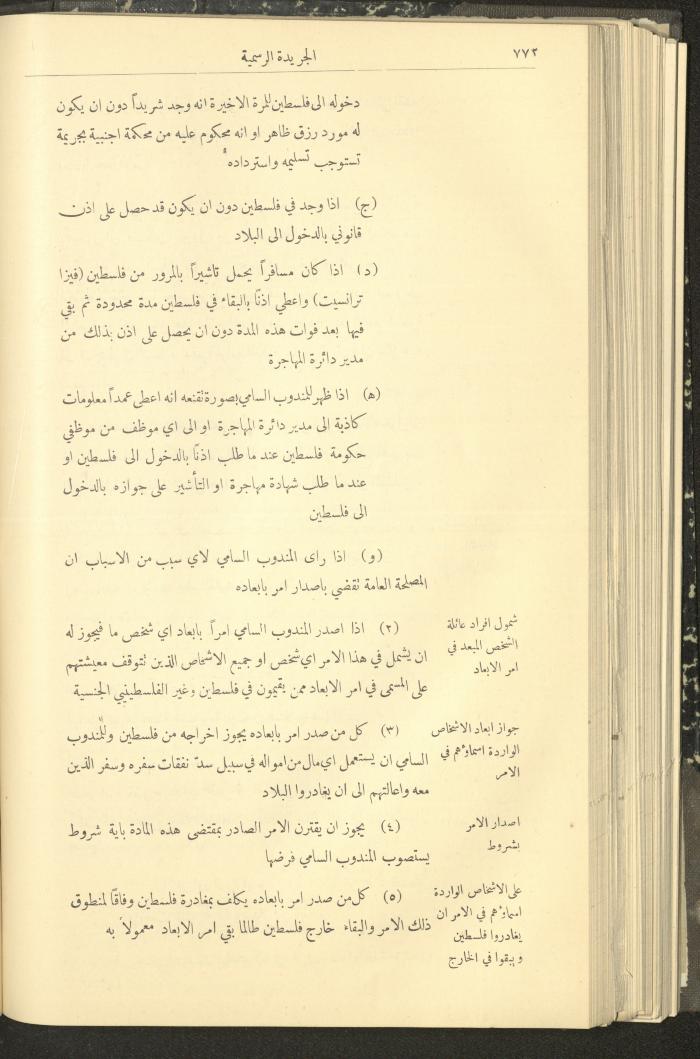 ٧٧٢
الجريدة الرسمية
دخوله الى فلسطين للمرة الاخيرة انه وجد شريداً دون ان يكون
له مورد رزق ظاهر او انه محكوم عليه من محكمة اجنبية بجريمة
تستوجب تسليمه واسترداده
(ج) اذا وجد في فلسطين دون ان يكون قد حصل على اذن
قانوني بالدخول الى البلاد
(د) اذا كان مسافراً يحمل تاشيراً بالمرور من فلسطين (فيزا
ترانسيت) واعطي اذنًا بالبقاء في فلسطين مدة محدودة ثم بقي
فيها بعد فوات هذه المدة دون ان يحصل على اذن بذلك من
مدير دائرة المهاجرة
(ه) اذا ظهر للمندوب السامي بصورة تقنعه انه اعطى عمداً معلومات
كاذبة الى مدير دائرة المهاجرة او الى اي موظف من موظفي
حكومة فلسطين عند ما طلب اذنًا بالدخول الى فلسطين او
عند ما طلب شهادة مهاجرة او التأشير على جوازه بالدخول
الى فلسطين
(و) اذا راى المندوب السامي لاي سبب من الاسباب ان
المصلحة العامة تقضي باصدار امر بابعاده
شمول افراد عائلة
الشخص المبعد في
امر الابعاد
(٢) اذا اصدر المندوب السامي امراً بابعاد اي شخص ما فيجوز له
ان يشمل في هذا الامر اي شخص او جميع الاشخاص الذين تتوقف معيشتهم
على المسمى في امر الابعاد ممن يقيمون في فلسطين وغير الفلسطينيي الجنسية
جواز ابعاد الاشخاص
الواردة اسماؤهم في
الامر
(٣) كل من صدر امر بابعاده يجوز اخراجه من فلسطين وللمندوب
السامي ان يستعمل اي مال من امواله في سبيل سدّ نفقات سفره وسفر الذين
معه واعالتهم الى ان يغادروا البلاد
اصدار الامر
بشروط
(٤) يجوز ان يقترن الامر الصادر بمقتضى هذه المادة باية شروط
يستصوب المندوب السامي فرضها
على الاشخاص الواردة
اسماؤهم في الامر ان
يغادروا فلسطين
ويبقوا في الخارج
(٥) كل من صدر امر بابعاده يكلف بمغادرة فلسطين وفاقًا لمنطوق
ذلك الامر والبقاء خارج فلسطين طالما بقي امر الابعاد معمولاً به